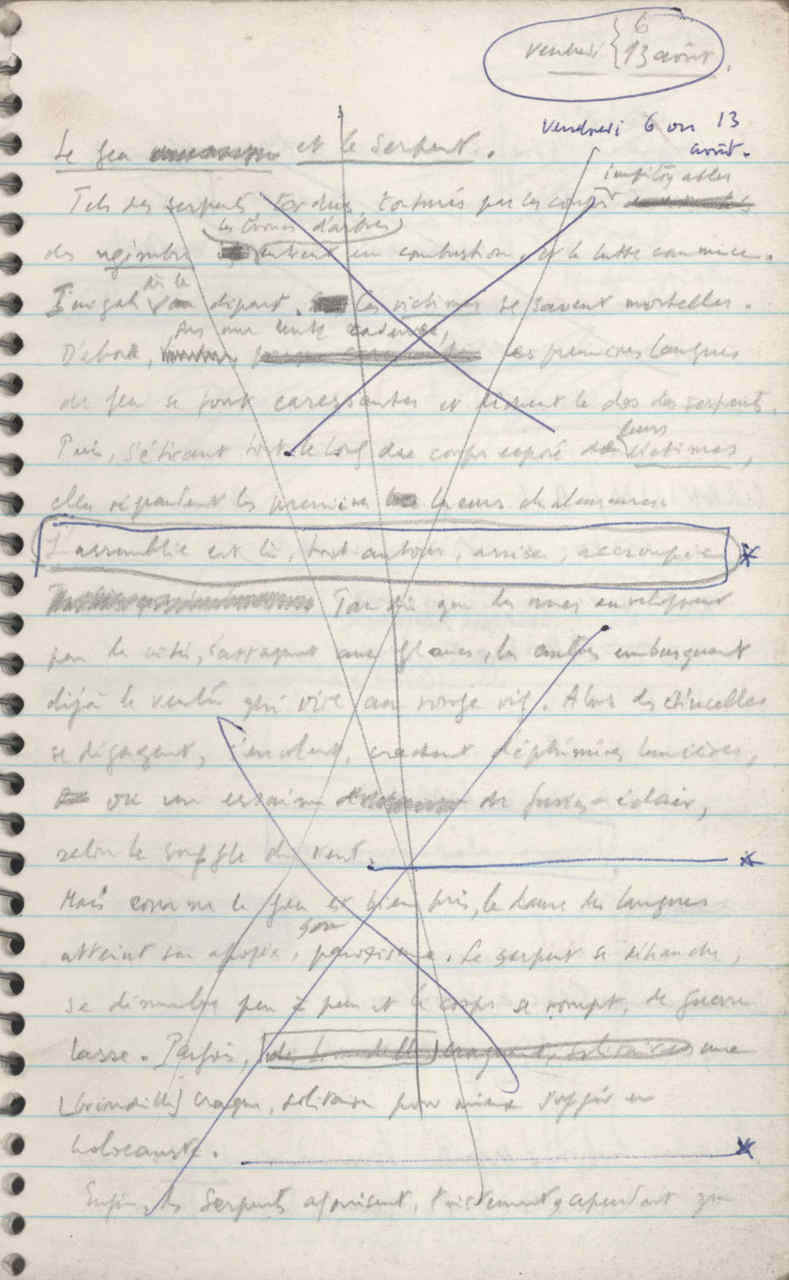 6
vendredi { 13 août.
Vendredi 6 ou 13
août.
Le feu et le Serpent.
impitoyables
Tels des serpents tordus, torturés par les coups
les troncs d'arbres
des entrent en combustion, et le lutte commence.
dès le
Inégale départ. les victimes se savent mortelles.
sur une lente cadence,
D'abord, les premières langues
de feu se font caressantes et lèchent le dos des serpents.
leurs
Puis, s'étirant tout le long du corps exposé de victimes,
elles répandent les premières lueurs chaleureuses.
L'assemblée est là, tout autour, assise, accroupie
Tandis que les unes enveloppent
par le côté, s'attaquent aux flancs, les autres embusquent
déjà le ventre qui vire au rouge vif. Alors des étincelles
se dégagent, s'envolent, crachent d'éphémères lumières,
ou un essaim de fusées-éclair,
selon le souffle du vent.
Mais comme le feu est bien pris, la danse des langues
son
atteint son apogée, paroxisme. Le serpent se déhanche,
se démembre peu à peu et le corps se rompt, de guerre
lasse. Parfois, des brindilles craquent, solitaires une
[brindille] craque, solitaire pour mieux s'offrir en
holocauste.
Enfin, les Serpents agonisent, cependant que